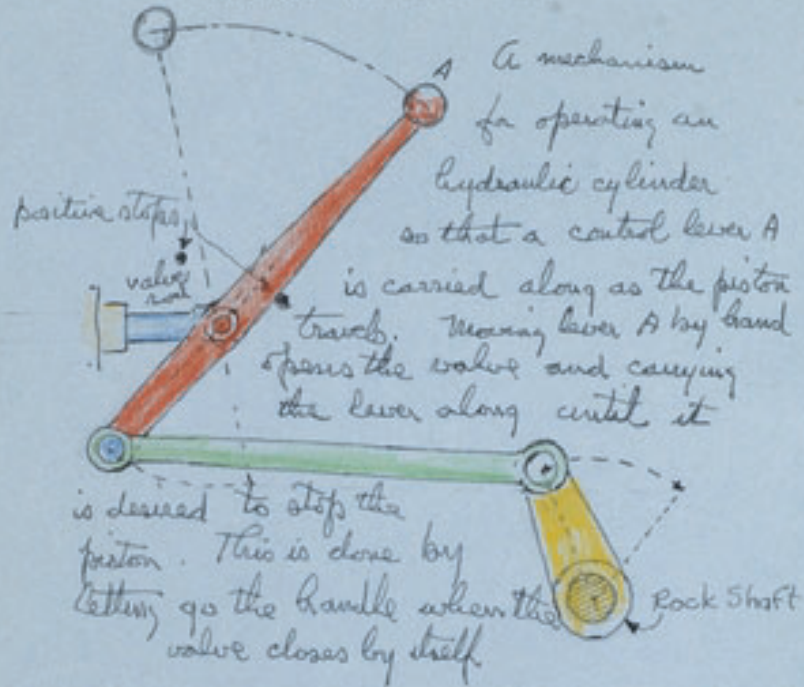 A
A mechanism
for operating an
hydraulic cylinder
so that a control lever A
is carried along as the piston
travels. Moving lever A by hand
opens the valve and carrying
the lever along until it
is desired to stop the
piston. This is done by
letting go the handle when the
valve closes by itself
positive stops
valve
rod
Rock Shaft